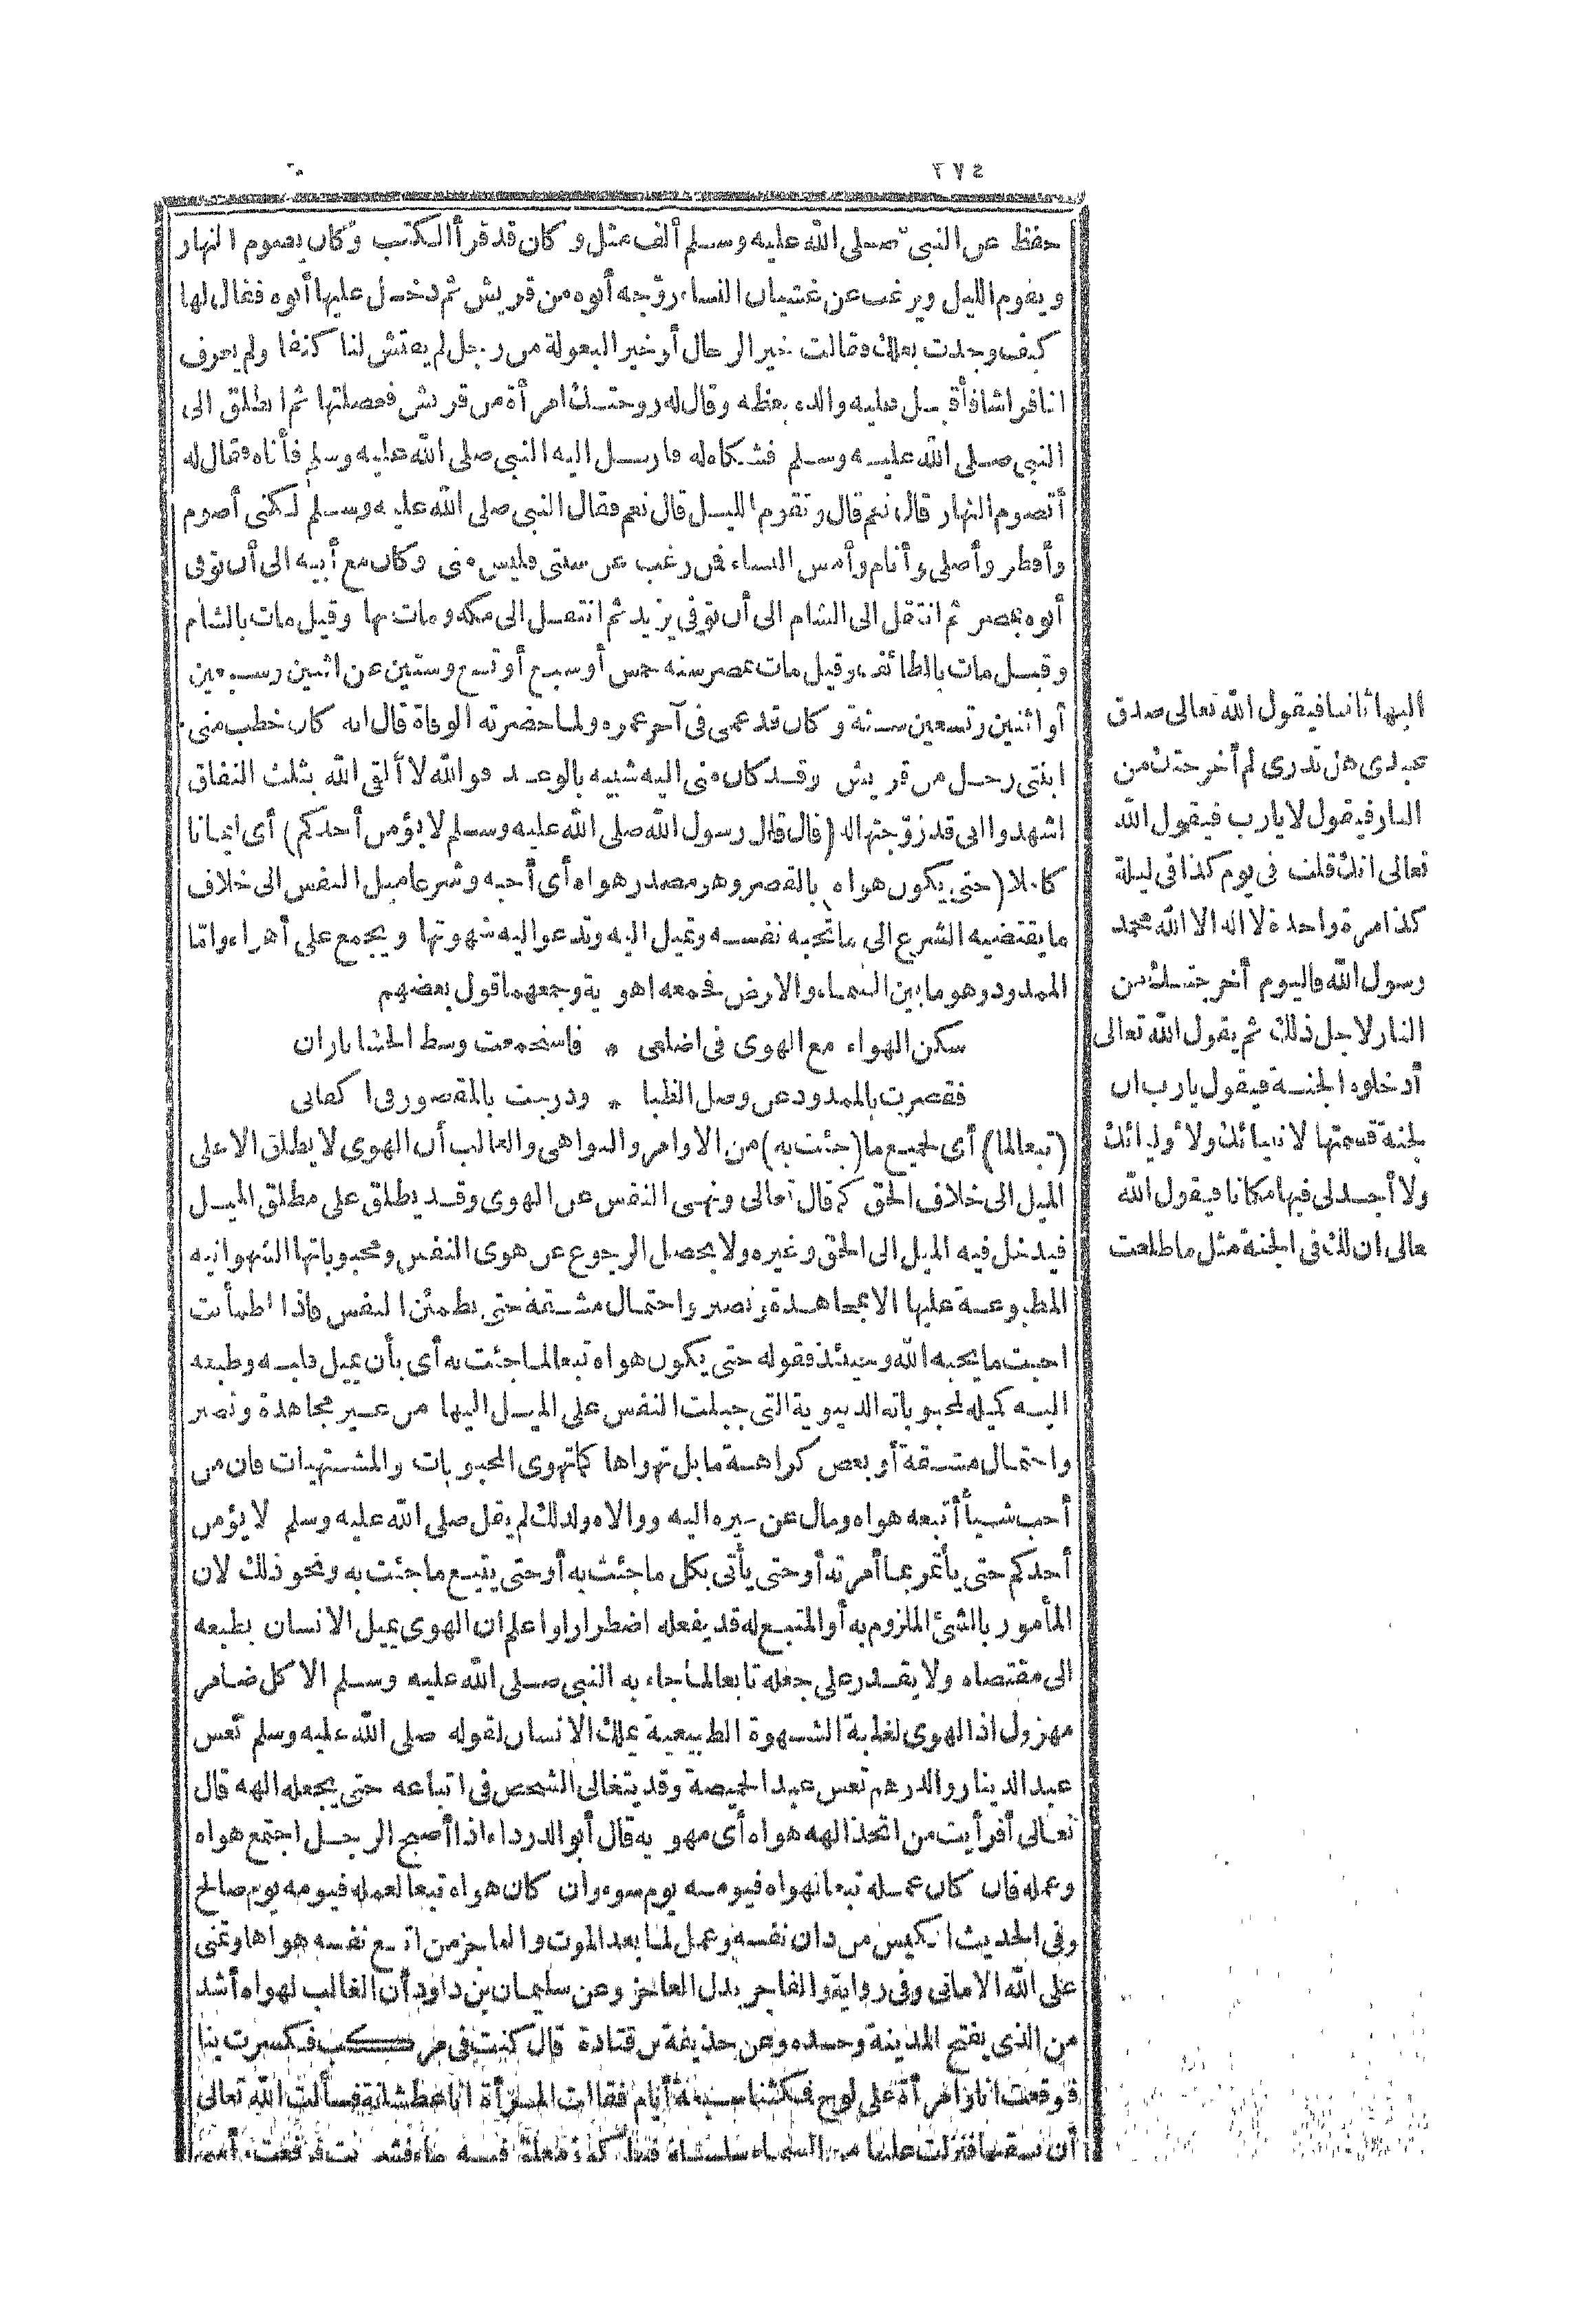 ٢٧٤
حفظ عن النبى صلى الله عليه وسلم ألف مثل وكان قد قرأ الكتب وكان يصوم النهار
ويقوم الليل ويرغب عن غشيان النساء زوّجه أبوه من قريش ثم دخل عليها أبوه فقال لها
كيف وجدت بعلك فقالت خير الرجال أو خير البعولة من رجل لم يفتش لنا كنفا ولم يعرف
لنا فراشا فأقبل عليه والده يعظه وقال له زوجتك امرأة من قريش فعضلتها ثم انطلق الى
النبى صلى الله عليه وسلم فشكاه له فأرسل اليه النبى صلى الله عليه وسلم فأتاه فقال له
أتصوم النهار قال نعم قال وتقوم الليل قال نعم فقال النبى صلى الله عليه وسلم لكنى أصوم
وأفطر وأصلى وأنام وأمس النساء فمن رغب عن سنتى فليس منى وكان مع أبيه الى أن توفى
أبوه بمصر ثم انتقل الى الشام الى أن توفى يزيد ثم انتقل الى مكة ومات بها وقيل مات بالشام
وقيل مات بالطائف وقيل مات بمصر سنة خمس أو سبع أو تسع وستين عن اثنين وسبعين
أو اثنين وتسعين سنة وكان قد عمى فى آخر عمره ولما حضرته الوفاة قال انه كان خطب منى
ابنتى رجل من قريش وقد كان منى اليه شبيه بالوعد فوالله لا ألقى الله بثلث النفاق
اشهدوا انى قد زوّجتها له (قال قال رسول الله صلى الله عليه وسلم لا يؤمن أحدكم) أى ايمانا
كاملا (حتى يكون هواه) بالقصر وهو مصدر هواه أى أحبه وشرعا ميل النفس الى خلاف
ما يقتضيه الشرع الى ما تحبه نفسه وتميل اليه وتدعو اليه شهوتها ويجمع على أهواء وامّا
الممدود وهو ما بين السماء والارض فجمعه اهوية وجمعهما قول بعضهم
سكن الهواء مع الهوى فى اضلعى * فاستجمعت وسط الحشا ناران
فقصرت بالممدود عن وصل الظبا * ودرجت بالمقصور فى اكفانى
(تبعا لما) أى لجميع ما (جئت به) من الاوامر والنواهى والغالب أن الهوى لا يطلق الا على
الميل الى خلاف الحق كم قال تعالى ونهى النفس عن الهوى وقد يطلق على مطلق الميل
فيدخل فيه الميل الى الحق وغيره ولا يحصل الرجوع عن هوى النفس ومحبوباتها الشهوانيه
المطبوعة عليها الا بمجاهدة وتصبر واحتمال مشقة حتى تطمئن النفس فاذا اطمأنت
احبت ما يحبه الله وحينئذ فقوله حتى يكون هواه تبعا لما جئت به أى بأن يميل قلبه وطبعه
اليه كميله لمحبوباته الدنيوية التى جبلت النفس على الميل اليها من غير مجاهدة وتصبر
واحتمال مشقة أو بعض كراهة ما بل تهواها كما تهوى المحبوبات والمشتهيات فان من
أحب شيأ أتبعه هواه ومال عن غيره اليه ووالاه ولذلك لم يقل صلى الله عليه وسلم لا يؤمن
أحدكم حتى يأتمر بما أمرته أو حتى يأتى بكل ما جئت به أو حتى يتبع ما جئت به ونحو ذلك لان
المأمور بالشئ الملزوم به أو المتبع له قد يفعله اضطرارا واعلم ان الهوى يميل الانسان بطبعه
الى مقتضاه ولا يقدر على جعله تابعا لما جاء به النبى صلى الله عليه وسلم الا كل ضامر
مهزول اذ الهوى لغلبة الشهوة الطبيعية يملك الانسان لقوله صلى الله عليه وسلم تعس
عبد الدينار والدرهم تعس عبد الخميصة وقد يتغالى الشخص فى اتباعه حتى يجعله الهه قال
تعالى أفرأيت من اتخذ الهه هواه أى مهويه قال أبو الدرداء اذا أصبح الرجل اجتمع هواه
وعمله فان كان عمله تبعا لهواه فيومه يوم سوء وان كان هواه تبعا لعمله فيومه يوم صالح
وفى الحديث الكيس من دان نفسه وعمل لما بعد الموت والعاجز من اتبع نفسه هواها وتمنى
على الله الامانى وفى رواية والفاجر بدل العاجز وعن سليمان بن داود أن الغالب لهواه أشد
من الذى يفتح المدينة وحده وعن حذيفة بن قتادة قال كنت فى مركب فكسرت بنا
فوقعت انا وامرأة على لوح فمكثنا سبعة أيام فقالت المرأة انا عطشانة فسألت الله تعالى
أن يسقيها فنزلت علينا من السماء سلسلة فيها كوز معلق فيه ماء فشربت فرفعت
اليها أنا نسا فيقول الله تعالى صدق
عبدى هل تدرى لم أخرجتك من
النار فيقول لا يارب فيقول الله
تعالى انك قلت فى يوم كذا فى ليلة
كذا مرة واحدة لا اله الا الله محمد
رسول الله فاليوم أخرجتك من
النار لاجل ذلك ثم يقول الله تعالى
أدخلوه الجنة فيقول يارب ان
لجنة قسمتها لانبيائك ولأوليائك
ولا أجد لى فيها مكانا فيقول الله
عالى ان لك فى الجنة مثل ما طلعت